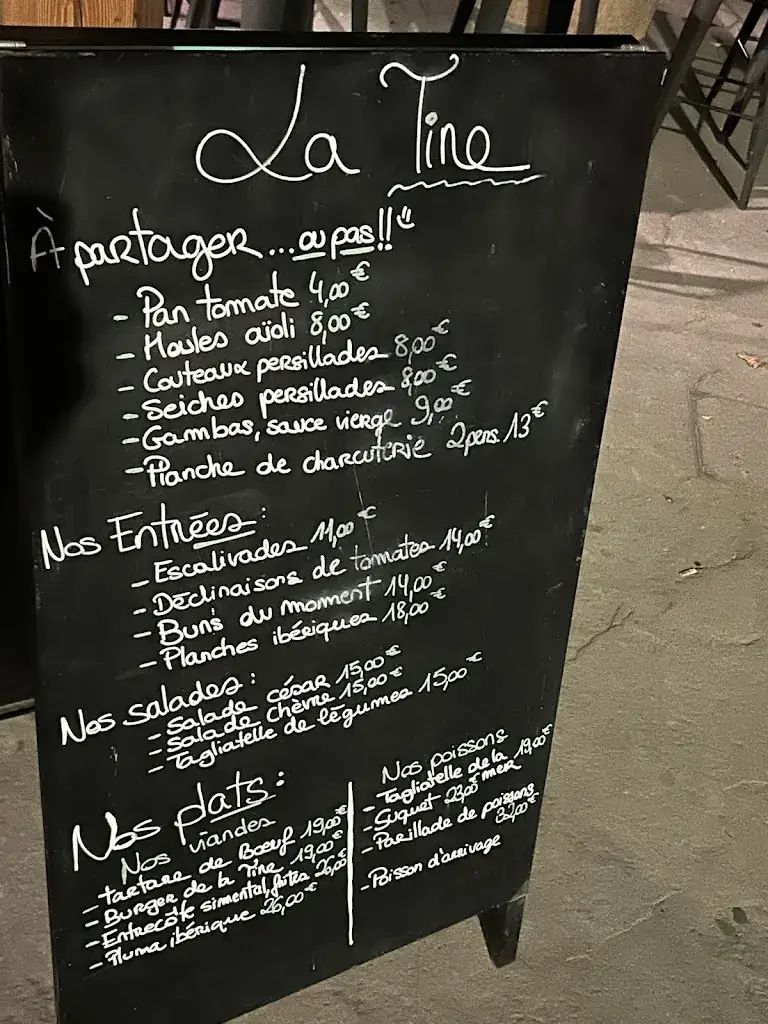 La Tine
À partager... ou pas!!
- Pan tomate 4,00€
- Moules aïoli 8,00€
- Couteaux persillades 8,00€
- Seiches persillades 8,00€
- Gambas, sauce vierge 9,00€
- Planche de charcuterie 2pers. 13€
Nos Entrées:
- Escalivades 11,00€
- Déclinaisons de tomates 14,00€
- Buns du moment 14,00€
- Planches ibériques 18,00€
Nos salades:
- Salade césar 15,00€
- Salade Chèvre 15,00€
- Tagliatelle de légumes 15,00€
Nos plats:
Nos viandes
- Tartare de Boeuf 19,00€
- Burger de la Tine 19,00€
- Entrecôte simental, frites 26,00€
- Pluma ibérique 26,00€
Nos poissons
- Tagliatelle de la mer 19,00€
- Suquet 23,00€
- Parillade de poissons
32,00€
- Poisson d'arrivage